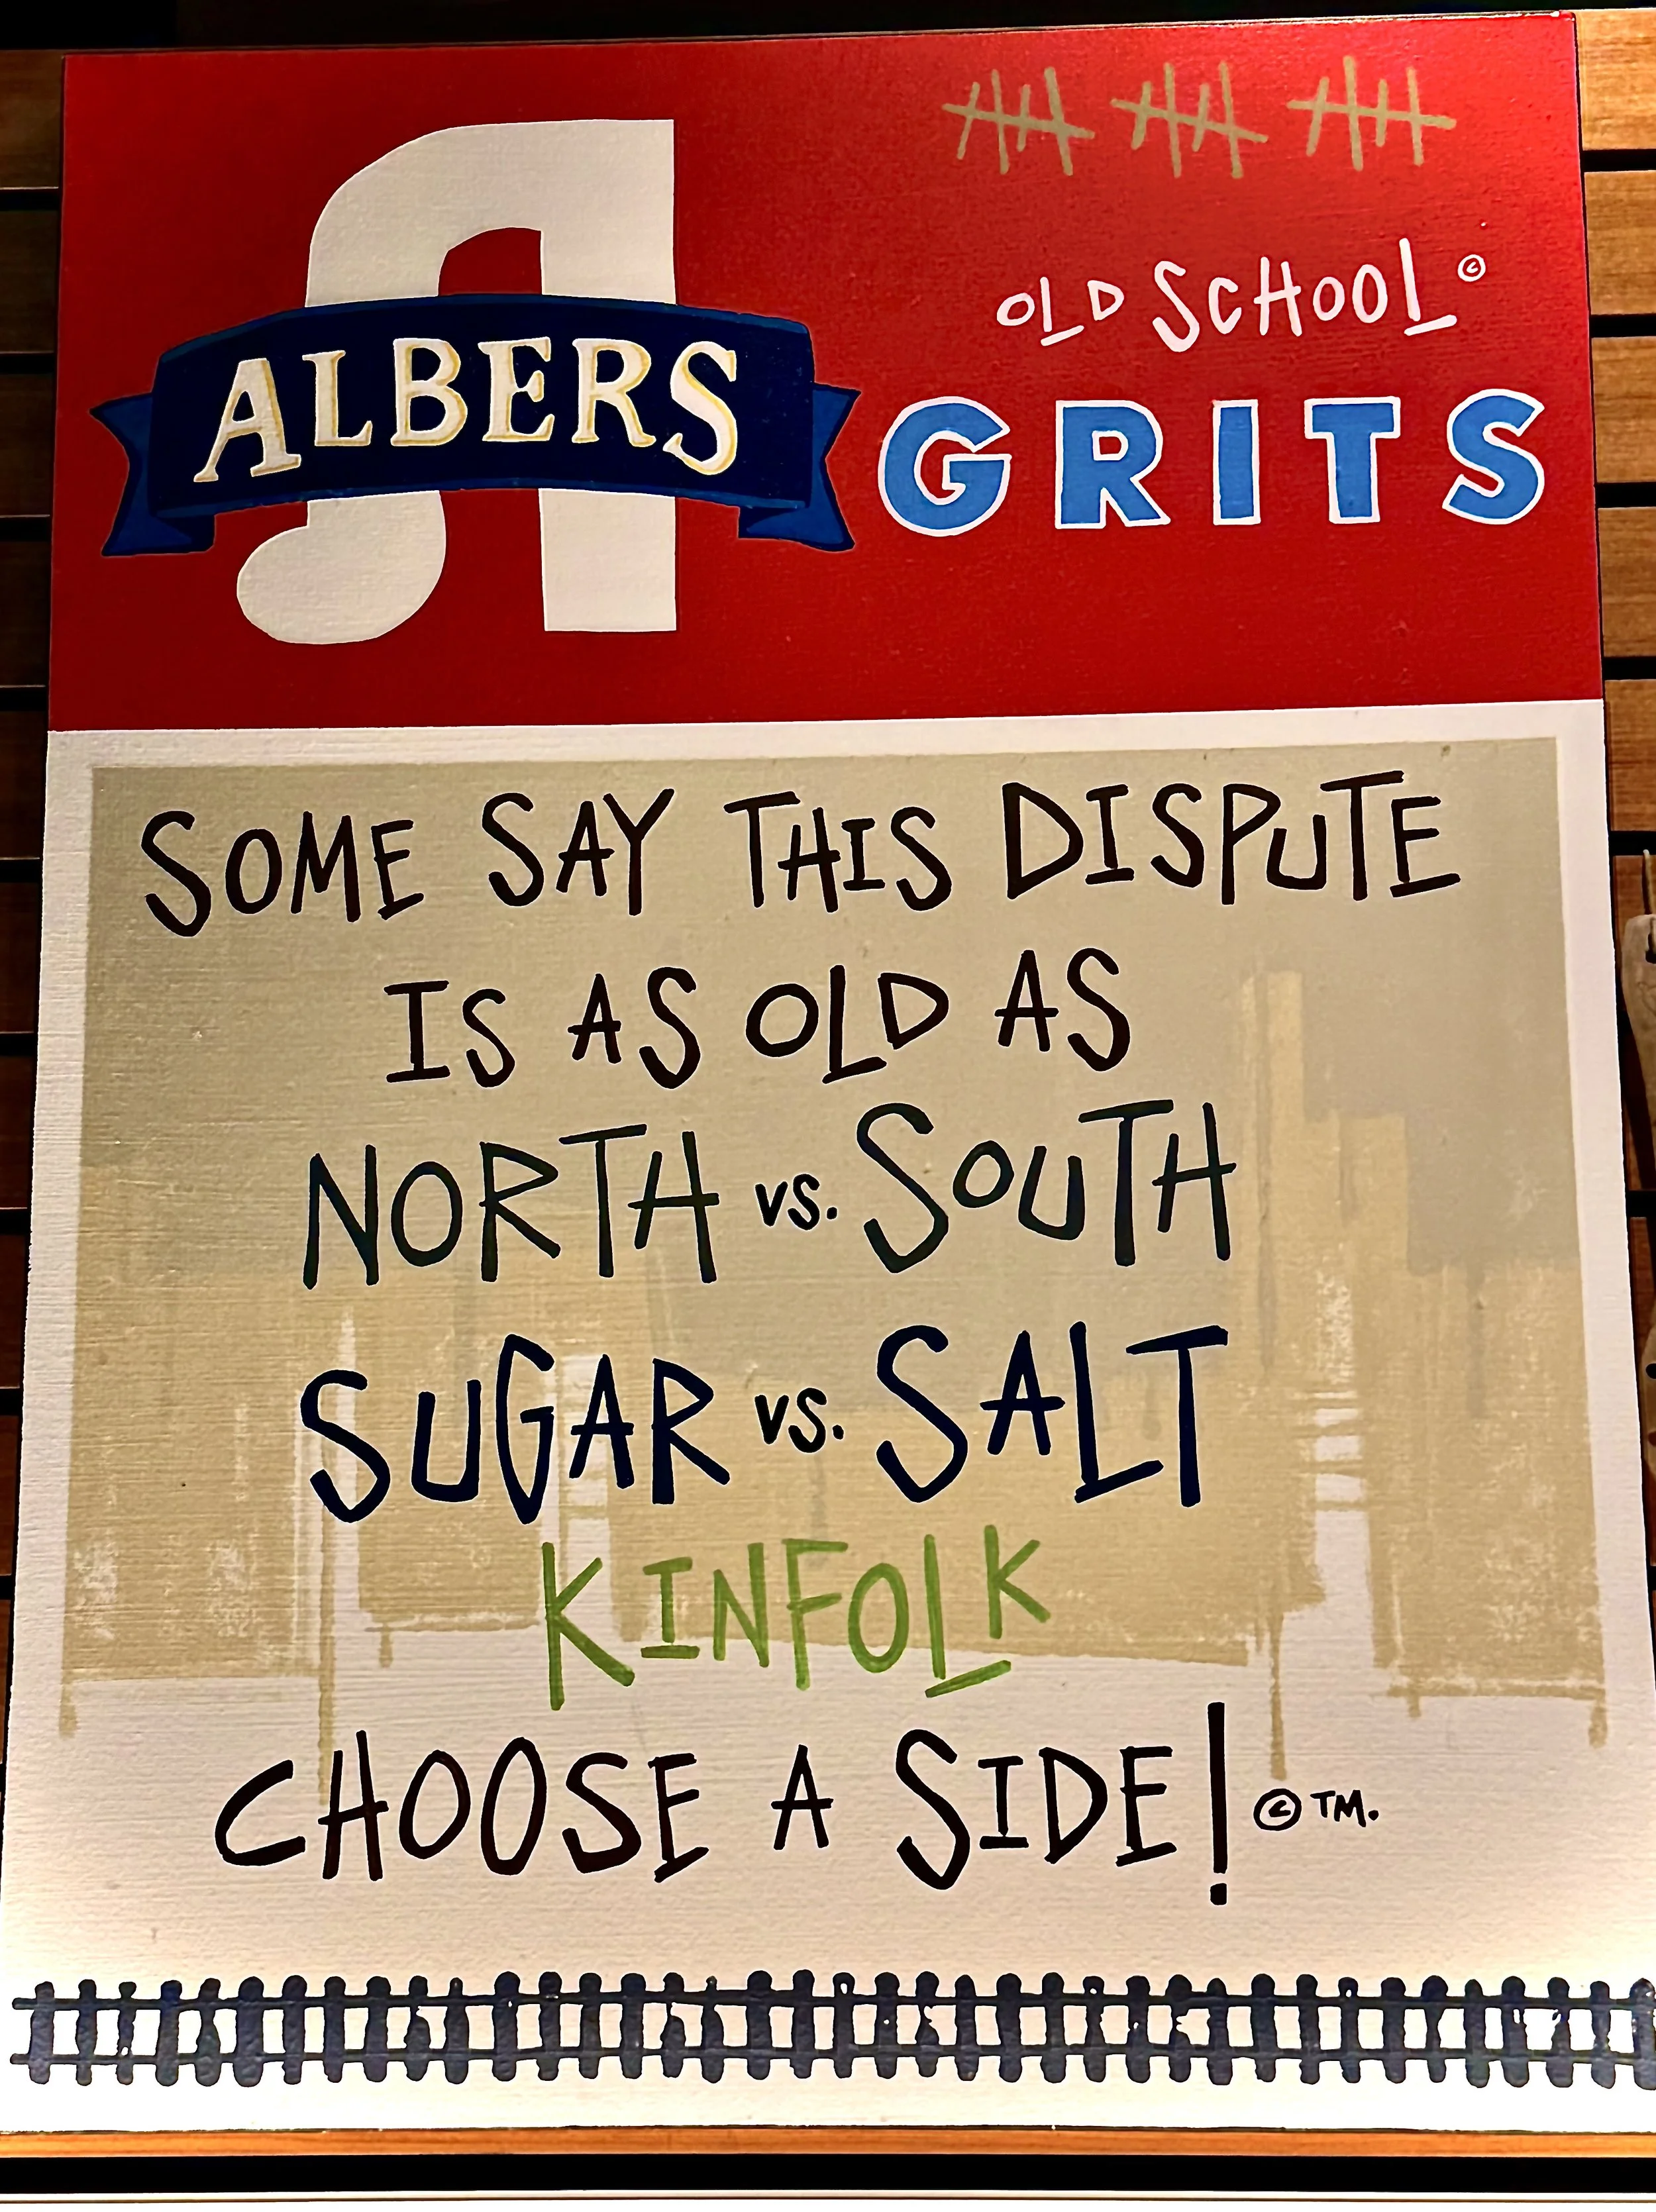 A
ALBERS
OLD SCHOOL ©
GRITS
SOME SAY THIS DISPUTE
IS AS OLD AS
NORTH vs. SOUTH
SUGAR vs. SALT
KINFOLK
CHOOSE A SIDE! © TM.